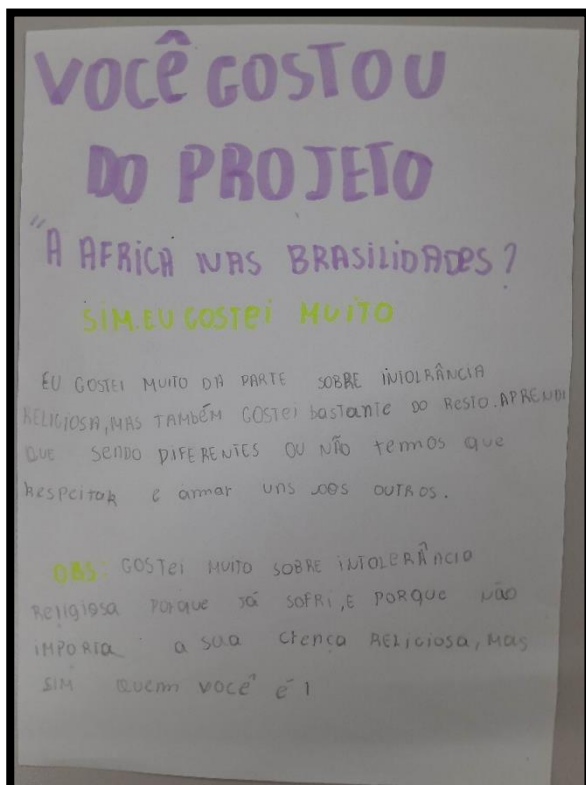 VOCÊ GOSTOU
DO PROJETO
"A AFRICA NAS BRASILIDADES?
SIM. EU GOSTEI MUITO
EU GOSTEI MUITO DA PARTE SOBRE INTOLRÂNCIA
RELIGIOSA, MAS TAMBÉM GOSTEI bASTANTE DO RESTO. APRENDI
QUE SENDO DIFERENTES OU NÃO temos que
RespeitaR e armar uns aos OUTROS.
OBS: GOSTEI MUITO SOBRE INTOLERÂNCIO
Religiosa PORQUE JÁ SOFRI, E PORQUE NÃO
IMPORTA a sua CRença RELIGIOSA, MAS
SIM Quem você é!